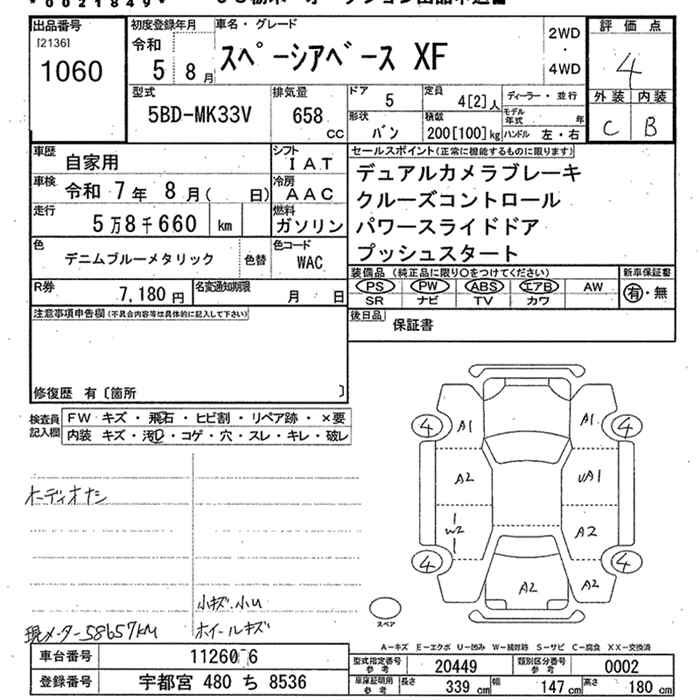 *0021849*
出品番号 [2136] 初度登録年月 車名・グレード 2WD 評価点
1060 令和 5年 8月 スペーシアベース XF ・ 4
4WD
型式 排気量 ドア 5 定員 4[2]人 ディーラー・並行 外装 内装
5BD-MK33V 658 cc 形状 バン 積載 200[100]kg モデル年式 年 ハンドル 左・右 C B
車歴 自家用 シフト IAT セールスポイント(正常に機能するものに限ります)
車検 令和 7年 8月( 日) 冷房 AAC デュアルカメラブレーキ
走行 5万8千660 km 燃料 ガソリン クルーズコントロール
色 デニムブルーメタリック 色替 色コード WAC パワースライドドア
プッシュスタート
R券 7,180円 名変通知期限 月 日 装備品(純正品に限り○をつけてください) 新車保証書
PS PW ABS エアB AW 有・無
SR ナビ TV カワ
注意事項申告欄(不具合内容等は具体的に記入して下さい) 後日品 保証書
修復歴 有〔箇所 〕
検査員記入欄 FW キズ・飛石・ヒビ割・リペア跡・×要
内装 キズ・汚・コゲ・穴・スレ・キレ・破レ
4 A1 A1 4
オーディオナシ A2 UA1
W2 A2
4 A2 A2 4
小キズ.小U
現メーター58657KM ホイールキズ スペア
A−キズ E−エクボ U−凹み W−補修跡 S−サビ C−腐食 XX−交換済
車台番号 11260 6 型式指定番号参考 20449 類別区分番号参考 0002
登録番号 宇都宮 480 ち 8536 車庫証明用参考 長さ 339cm 幅 147cm 高さ 180cm